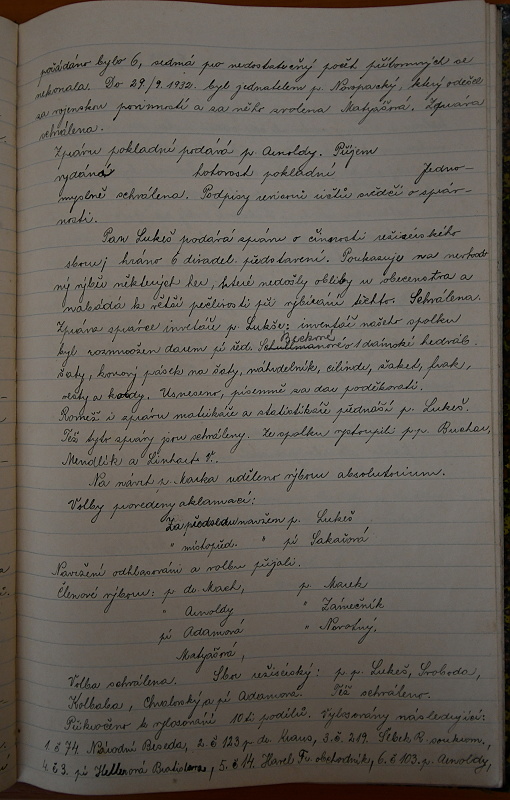 pořádáno bylo 6, sedmá pro nedostatečný počet přítomných se
nekonala. Do 29./9. 1932. byl jednatelem p. Novopacký, který odešel
za vojenskou povinností a za něho zvolena Matyášová. Zpráva
schválena.
Zprávu pokladní podává p. Arnoldy. Příjem
vydání hotovost pokladní Jedno-
myslně schválena. Podpisy revisorů účtů svědčí o správ-
nosti.
Pan Lukeš podává zprávu o činnosti režisérského
sboru; hráno 6 divadel. představení. Poukazuje na nevhod-
ný výběr některých her, které nedošly obliby u obecenstva a
nabádá k větší pečlivosti při vybírání těchto. Schválena.
Zpráva správce inventáře p. Lukše: inventář našeho spolku
byl rozmnožen darem pí řed. o 1 dámské hedváb.
šaty, kovový pásek na šaty, náhrdelník, cilindr, žaket, frak,
vesty a Usneseno, písemně za dar poděkovati.
Rovněž i zprávu matrikáře a statistikáře přednáší p. Lukeš.
Též tyto zprávy jsou schváleny. Ze spolku vystoupili p.p. Buchar,
Mendlík a Linhart V.
Na návrh p. Marka uděleno výboru absolutorium.
Volby provedeny aklamací:
Za předsedu navržen p. Lukeš
" místopřed. " pí Sakařová
Navržení odhlasováni a volbu přijali.
Členové výboru: p. dr. Mach, p. Marek
" Arnoldy " Zámečník
pí Adamová " Novotný,
Matyášová,
Volba schválena. Sbor režisérský: p.p. Lukeš, Svoboda,
Kolbaba, Chvalovský a pí Adamova. Též schváleno.
Přikročeno k vylosování 10ti podílů. Vylosovány následující:
1. č 74. Národní Beseda, 2. č 123 p. dr. Kraus, 3. č. 219. Šebek R. soukrom.,
4. č 3. pí Kellerová Bratislava, 5. č 14. Havel Fr. obchodník, 6. č 103. p. Arnoldy,